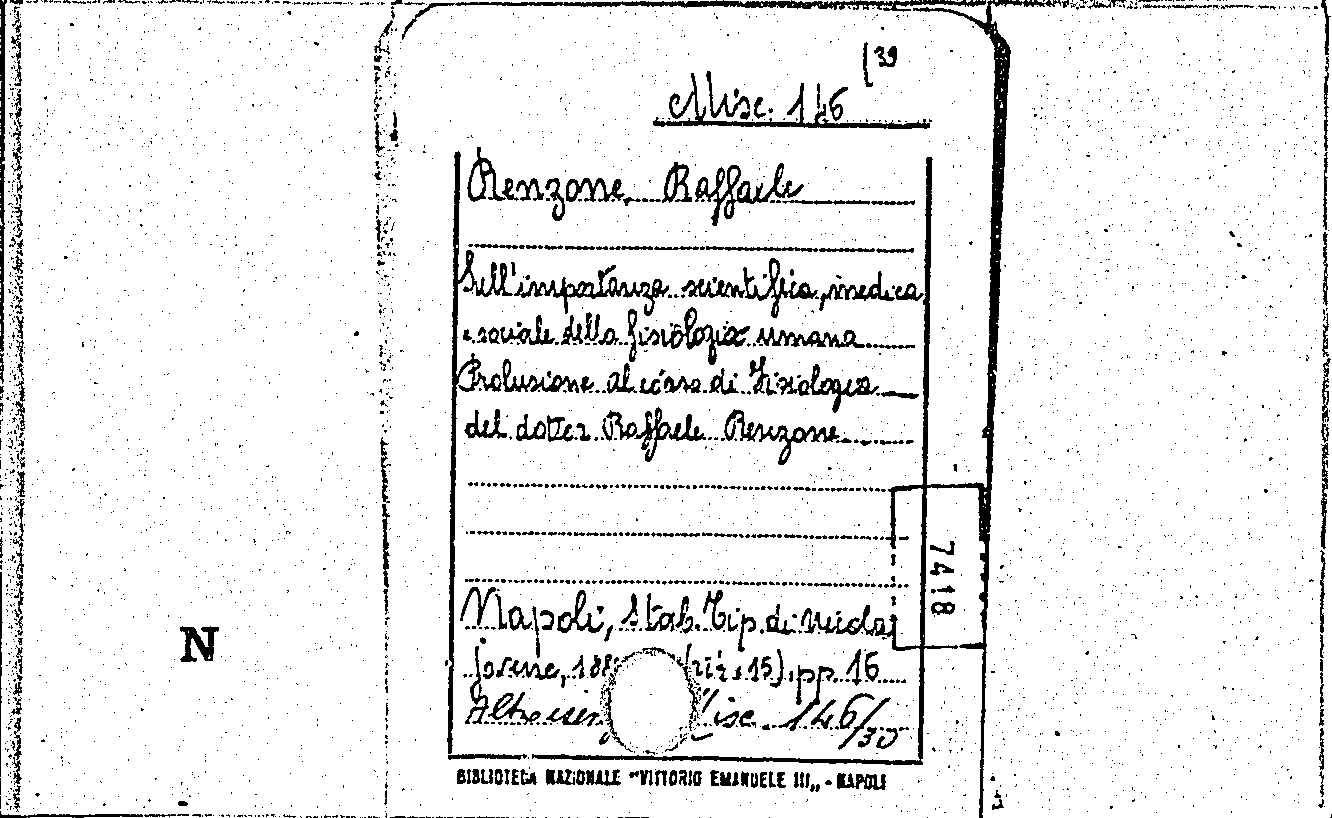 [39
Misc. 146
Renzone, Raffaele
Sull'importanza scientifica, medica
e sociale della fisiologia umana
Prolusione al corso di Fisiologia
del dotter Raffaele Renzone
7418
Napoli, Stab. Tip. di
N
188 15), pp. 16
Misc. 146/30
BIBLIOTECA NAZIONALE "VITTORIO EMANUELE III„ - NAPOLI